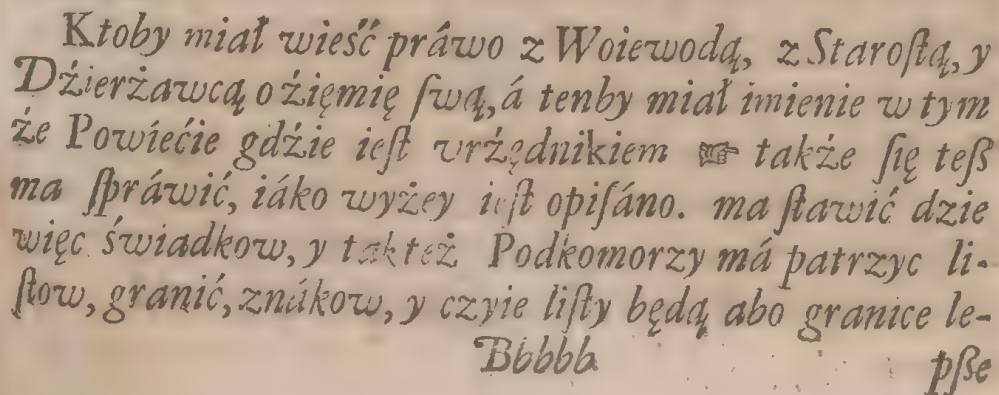 Ktoby miał wieść práwo z Woiewodą, z Staroſtą, y
Dźierżawcą o źięmię ſwą, á tenby miał imienie w tym
że Powiećie gdźie ieſt vrźędnikiem ☞ także ſię teſß
ma ſpráwić, iáko wyżey ieſt opiſáno. ma ſtawić dzie
więc świadkow, y takteż Podkomorzy má patrzyc li-
ſtow, granić, znákow, y czyie liſty będą abo granice le-
Bbbbb pſße